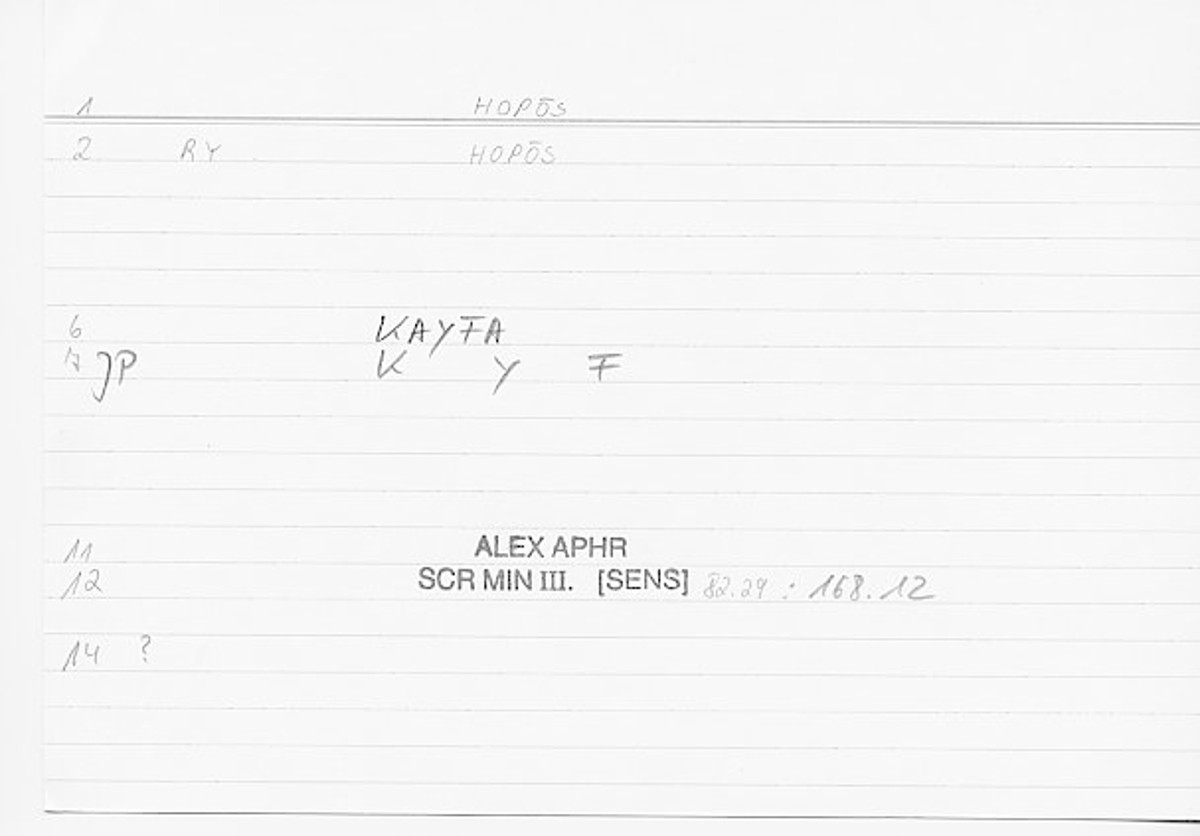 1 HOPŌS
2 RY HOPŌS
6 KAYFA
JP K Y F
11 ALEX APHR
12 SCR MIN III. [SENS] 82.29 : 168.12
14 ?